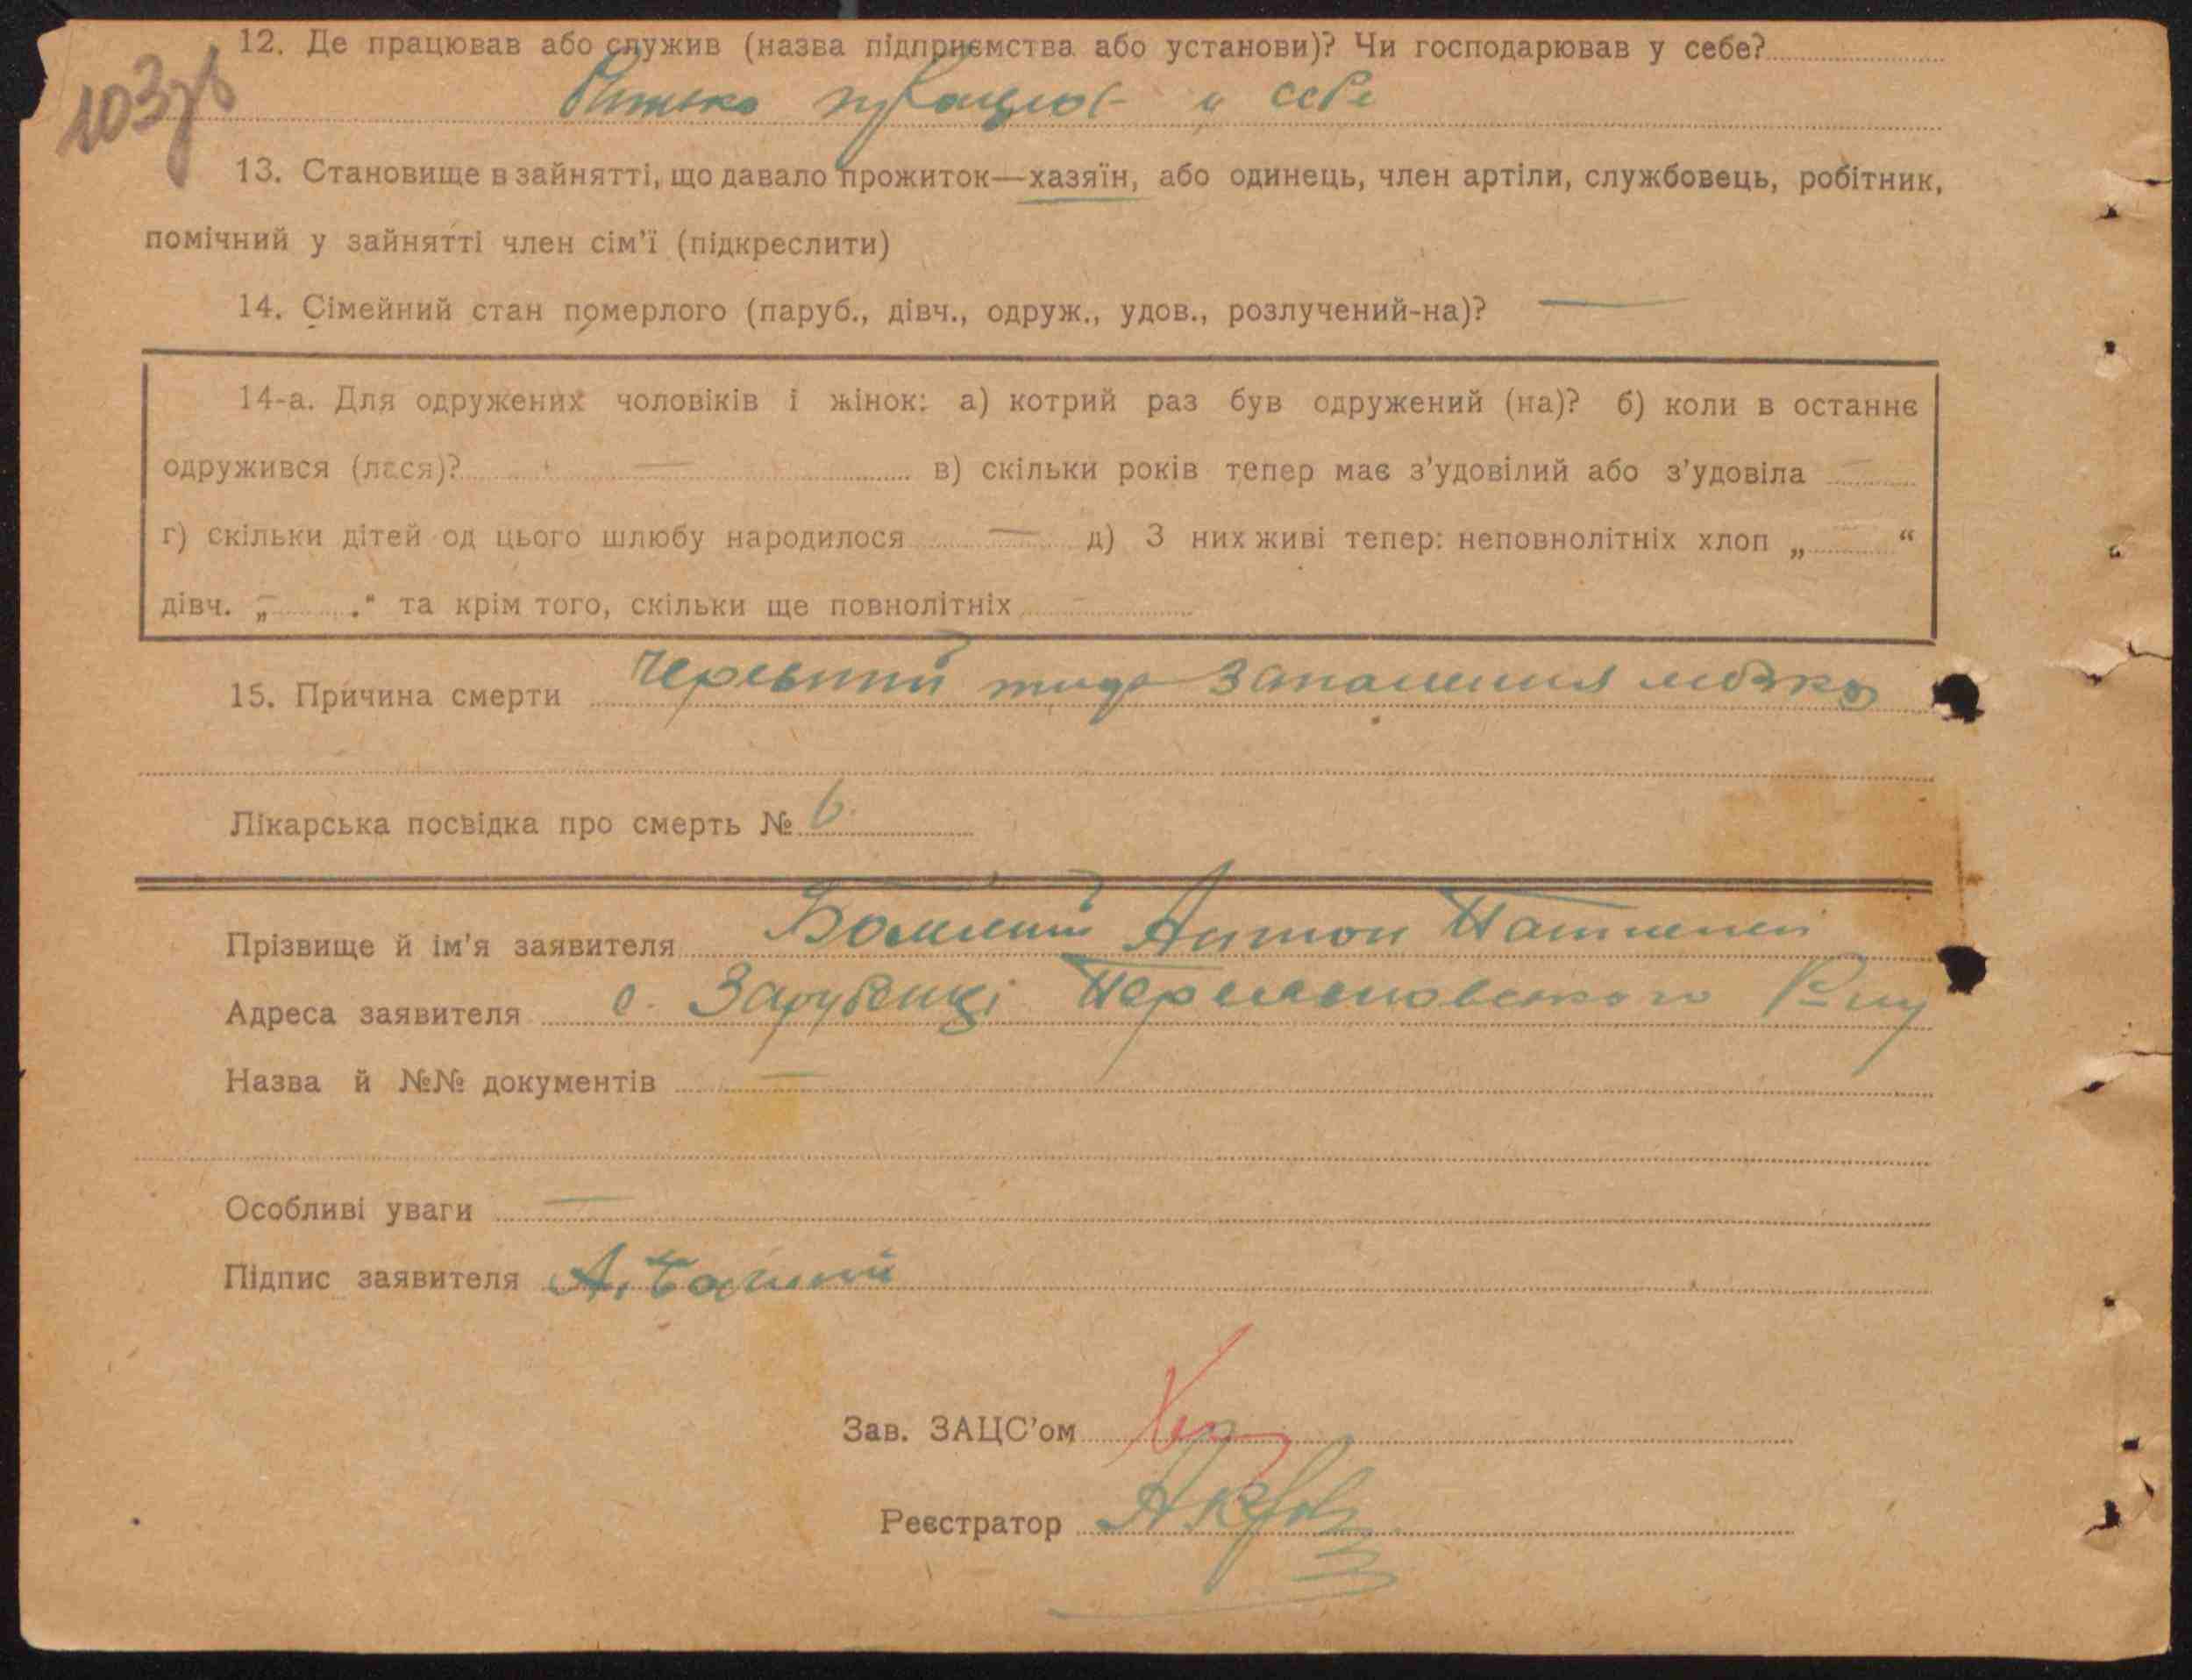 103зв
12. Де працював або служив (назва підприємства або установи)? Чи господарював у себе?
Батько працює у себе
13. Становище в зайнятті, що давало прожиток—хазяїн, або одинець, член артіли, службовець, робітник,
помічний у зайнятті член сім'ї (підкреслити)
14. Сімейний стан померлого (паруб., дівч., одруж., удов., розлучений-на)? —
14-а. Для одружених чоловіків і жінок: а) котрий раз був одружений (на)? б) коли в останнє
одружився (лася)? — в) скільки років тепер має з'удовілий або з'удовіла —
г) скільки дітей од цього шлюбу народилося — д) З них живі тепер: неповнолітніх хлоп „ — “
дівч. „ — .“ та крім того, скільки ще повнолітніх —
15. Причина смерти запалення мозку
Лікарська посвідка про смерть № 6
Прізвище й ім'я заявителя Антон
Адреса заявителя с. Зарубинці
Назва й №№ документів —
Особливі уваги —
Підпис заявителя А.
Зав. ЗАЦС'ом
Реєстратор